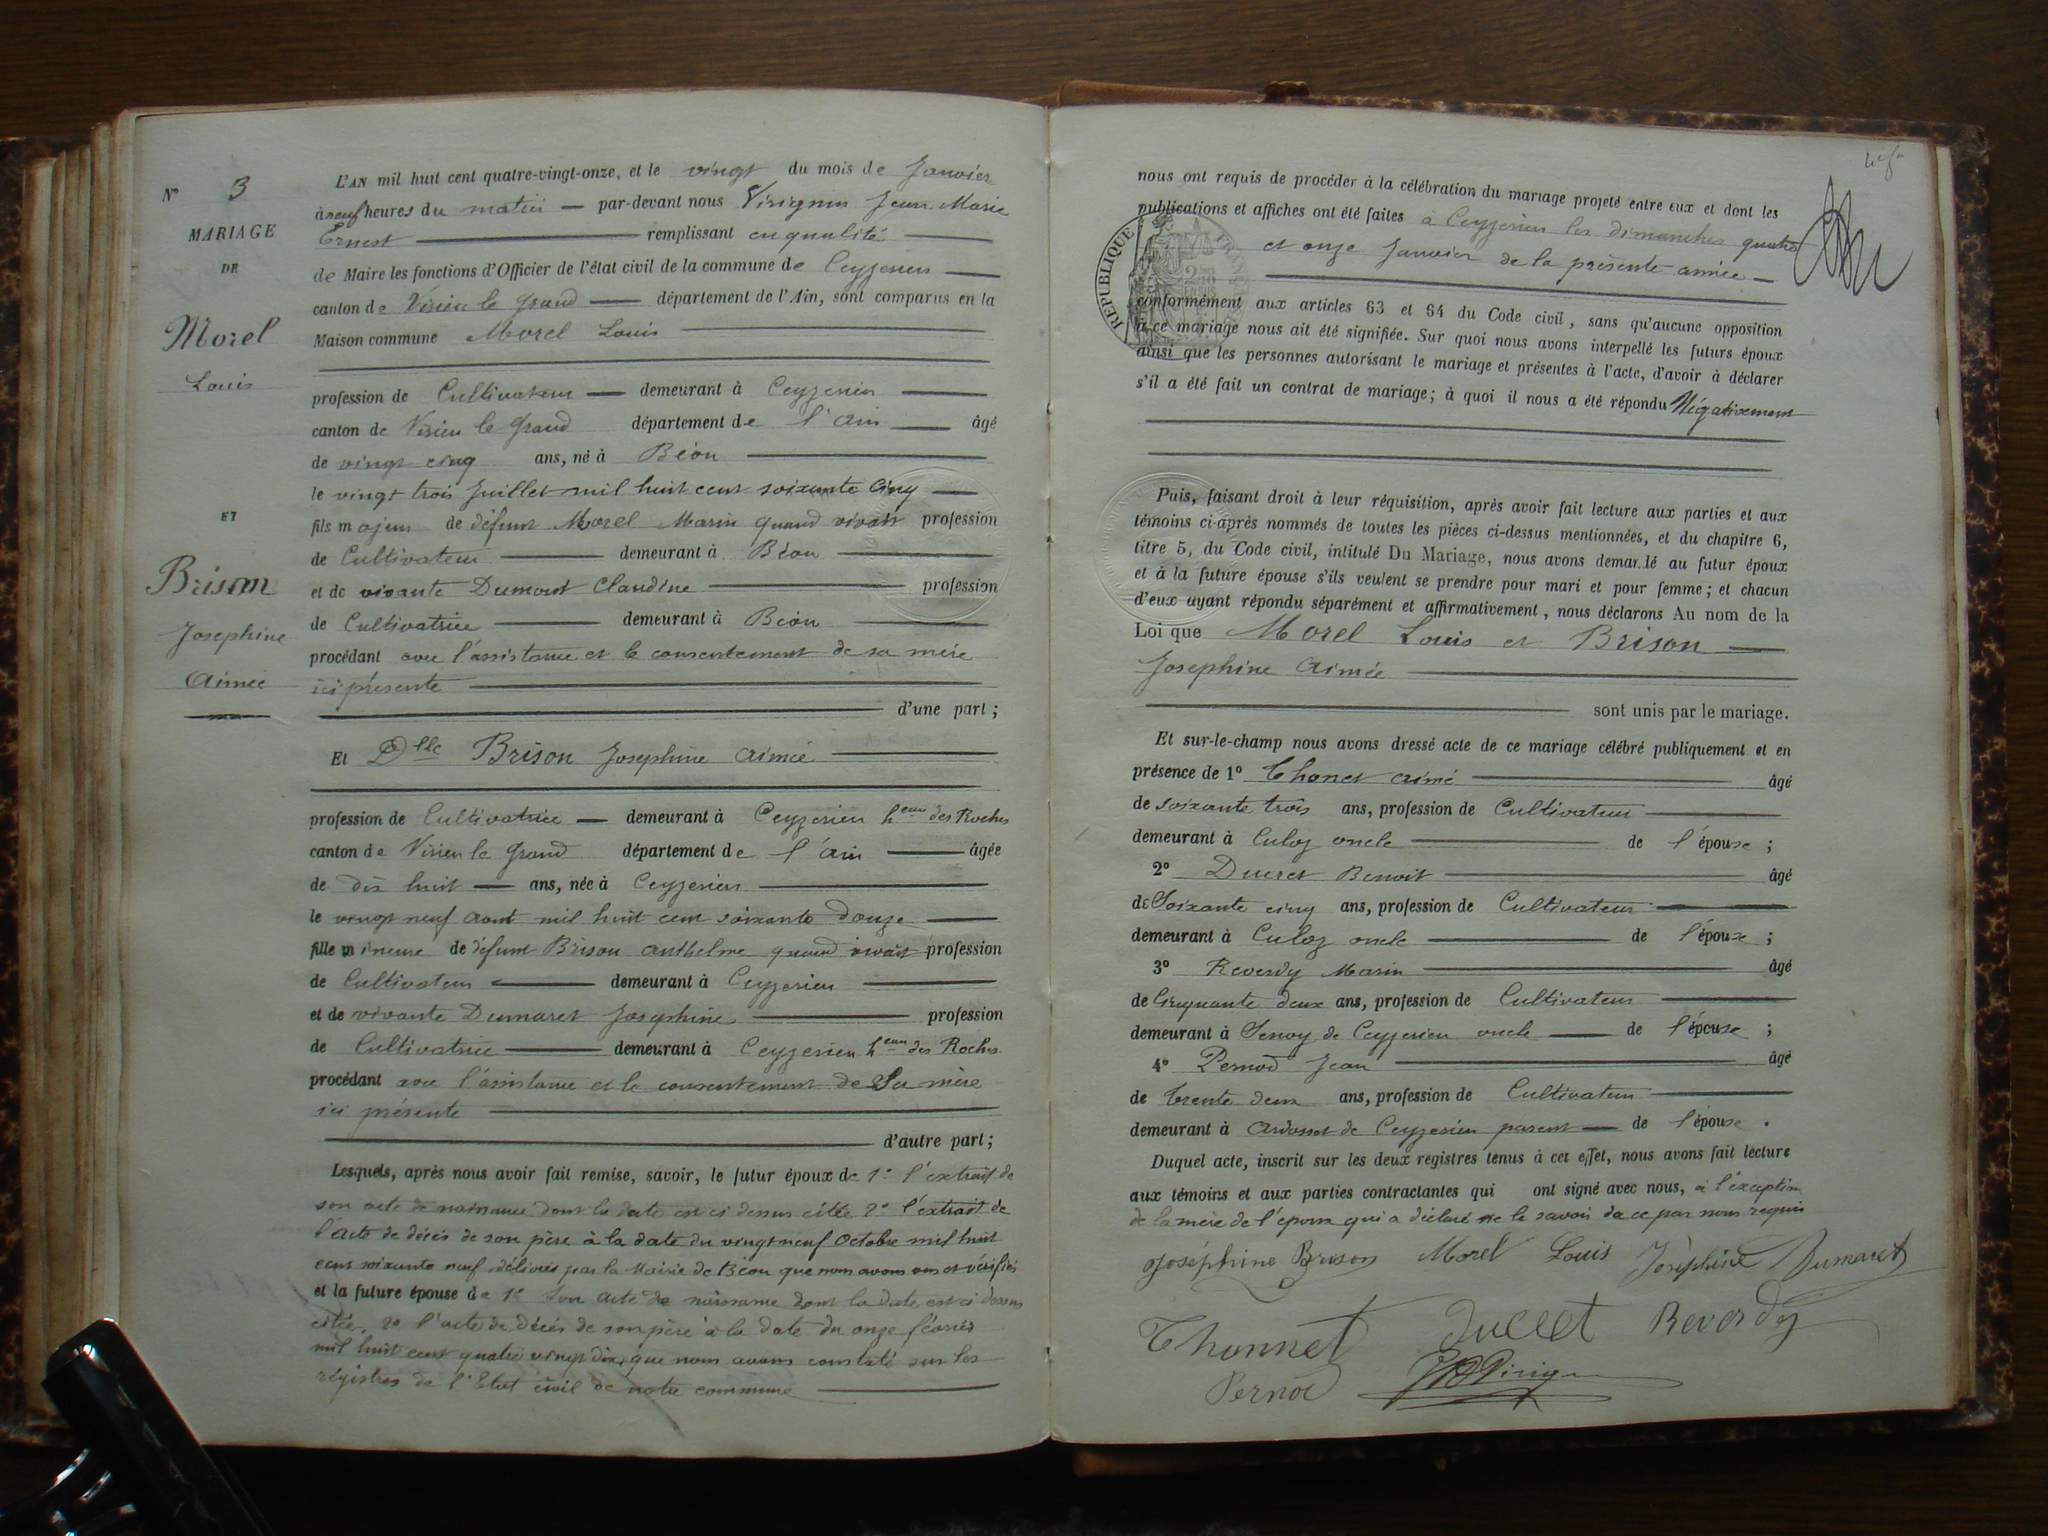 N° 3
MARIAGE
DE
Morel
Louis
ET
Brison
Josephine
Aimée
L'AN mil huit cent quatre-vingt-onze, et le vingt du mois de Janvier
à neuf heures du matin — par-devant nous Virignin Jean Marie
Ernest remplissant en qualité
de Maire les fonctions d'Officier de l'état civil de la commune de Ceyzerieu
canton de Virieu le Grand département de l'Ain, sont comparus en la
Maison commune Morel Louis
profession de Cultivateur demeurant à Ceyzerieu
canton de Virieu le Grand département de l'Ain âgé
de vingt cinq ans, né à Béon
le vingt trois Juillet mil huit cent soixante cinq
fils majeur de défunt Morel Marin quand vivait profession
de Cultivateur demeurant à Béon
et de vivante Dumont Claudine profession
de Cultivatrice demeurant à Béon
procédant avec l'assistance et le consentement de sa mère
ici présente
d'une part;
Et Dlle Brison Josephine Aimée
profession de Cultivatrice demeurant à Ceyzerieu heau des Roches
canton de Virieu le Grand département de l'Ain âgée
de dix huit ans, née à Ceyzerieu
le vingt neuf Aout mil huit cent soixante douze
fille mineure de défunt Brison Anthelme quand vivait profession
de Cultivateur demeurant à Ceyzerieu
et de vivante Dumaret Josephine profession
de Cultivatrice demeurant à Ceyzerieu heau des Roches
procédant avec l'assistance et le consentement de Sa mère
ici présente
d'autre part;
Lesquels, après nous avoir fait remise, savoir, le futur époux de 1° l'extrait de
son acte de naissance dont la date est ci dessus citée 2° l'extrait de
l'acte de décès de son père à la date du vingt neuf Octobre mil huit
cent soixante neuf délivrés par la Mairie de Béon que nous avons vus et vérifiés
et la future épouse de 1° Son acte de naissance dont la date est ci dessus
citée, 2° l'acte de décès de son père à la date du onze février
mil huit cent quatre vingt dix, que nous avons constaté sur les
régistres de l'Etat civil de notre commune
nous ont requis de procéder à la célébration du mariage projeté entre eux et dont les
publications et affiches ont été faites à Ceyzerieu les dimanches quatre
et onze Janvier de la présente année
RÉPUBLIQUE FRANÇAISE
conformément aux articles 63 et 64 du Code civil, sans qu'aucune opposition
à ce mariage nous ait été signifiée. Sur quoi nous avons interpellé les futurs époux
ainsi que les personnes autorisant le mariage et présentes à l'acte, d'avoir à déclarer
s'il a été fait un contrat de mariage; à quoi il nous a été répondu Négativement
Puis, faisant droit à leur réquisition, après avoir fait lecture aux parties et aux
témoins ci-après nommés de toutes les pièces ci-dessus mentionnées, et du chapitre 6,
titre 5, du Code civil, intitulé Du Mariage, nous avons demandé au futur époux
et à la future épouse s'ils veulent se prendre pour mari et pour femme; et chacun
d'eux ayant répondu séparément et affirmativement, nous déclarons Au nom de la
Loi que Morel Louis et Brison
Josephine Aimée
sont unis par le mariage.
Et sur-le-champ nous avons dressé acte de ce mariage célébré publiquement et en
présence de 1° Thonet Aimé âgé
de soixante trois ans, profession de Cultivateur
demeurant à Culoz oncle de l'épouse;
2° Ducret Benoit âgé
de Soixante cinq ans, profession de Cultivateur
demeurant à Culoz oncle de l'épouse;
3° Reverdy Marin âgé
de Cinquante deux ans, profession de Cultivateur
demeurant à Senoy de Ceyzerieu oncle de l'épouse;
4° Pernod Jean âgé
de trente deux ans, profession de Cultivateur
demeurant à Ardosset de Ceyzerieu parent de l'épouse.
Duquel acte, inscrit sur les deux registres tenus à cet effet, nous avons fait lecture
aux témoins et aux parties contractantes qui ont signé avec nous, à l'exception
de la mère de l'époux qui a déclaré ne le savoir de ce par nous requis
Joséphine Brison Morel Louis Joséphine Dumaret
Thonnet Ducret Reverdy
Pernod